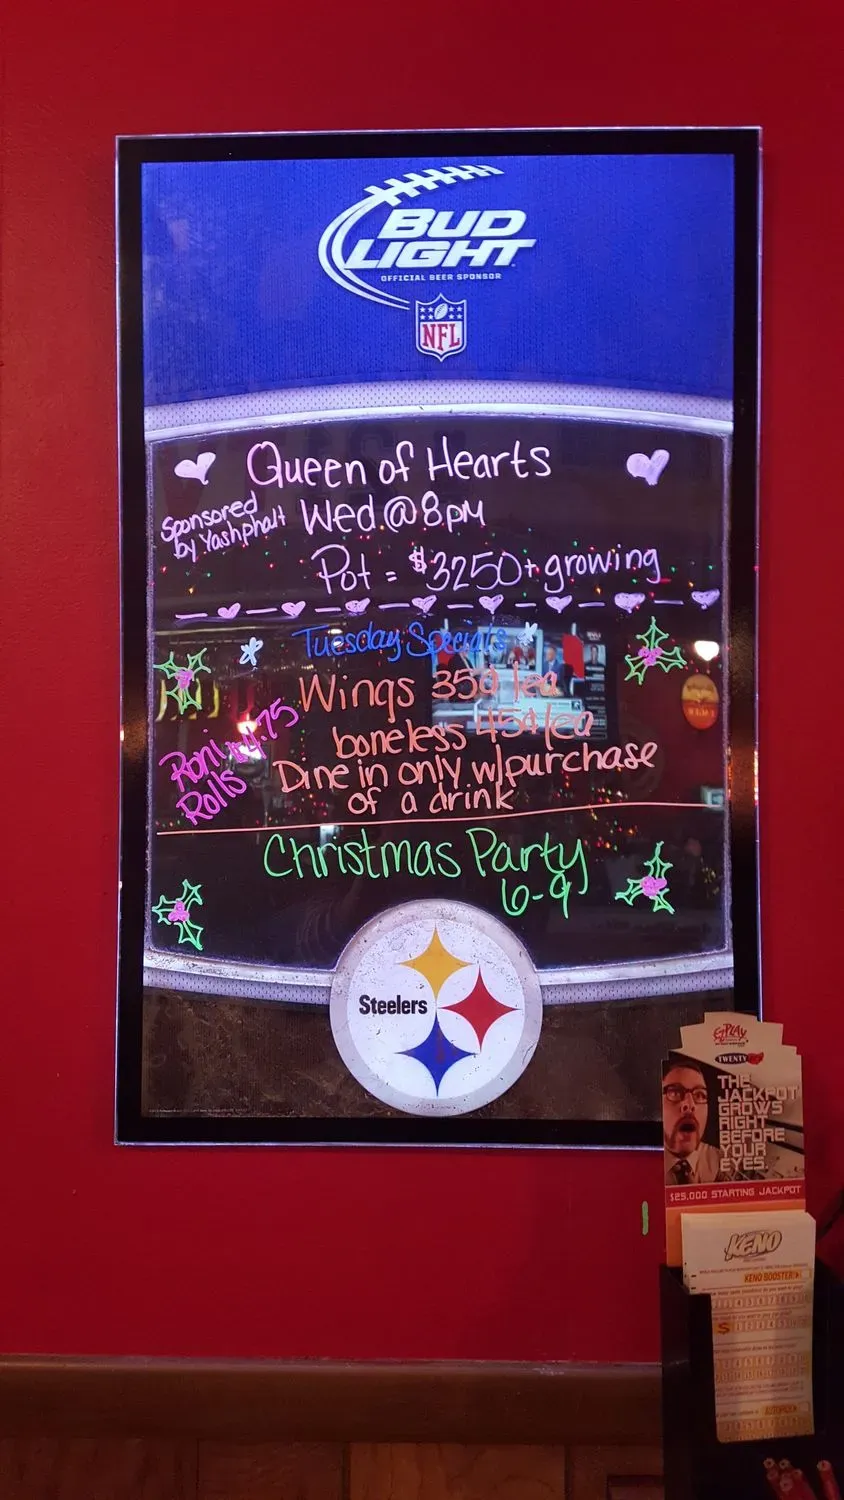 BUD
LIGHT
OFFICIAL BEER SPONSOR
NFL
Queen of Hearts
Sponsored
by Yashphalt
Wed @ 8pm
Pot = $3250 + growing
Tuesday Specials
Wings 35¢/ea
boneless 45¢/ea
Roni
Rolls
Dine in only w/purchase
of a drink
Christmas Party
6-9
Steelers
EZPLAY
TWENTY
THE
JACKPOT
GROWS
RIGHT
BEFORE
YOUR
EYES.
$25,000 STARTING JACKPOT
KENO
KENO BOOSTER